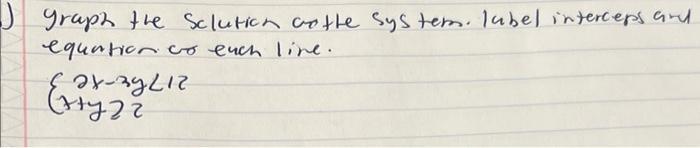 ) graph the solution to the system. label interceps and
equation to each line.
{ 2x-3y<12
x+y≥2